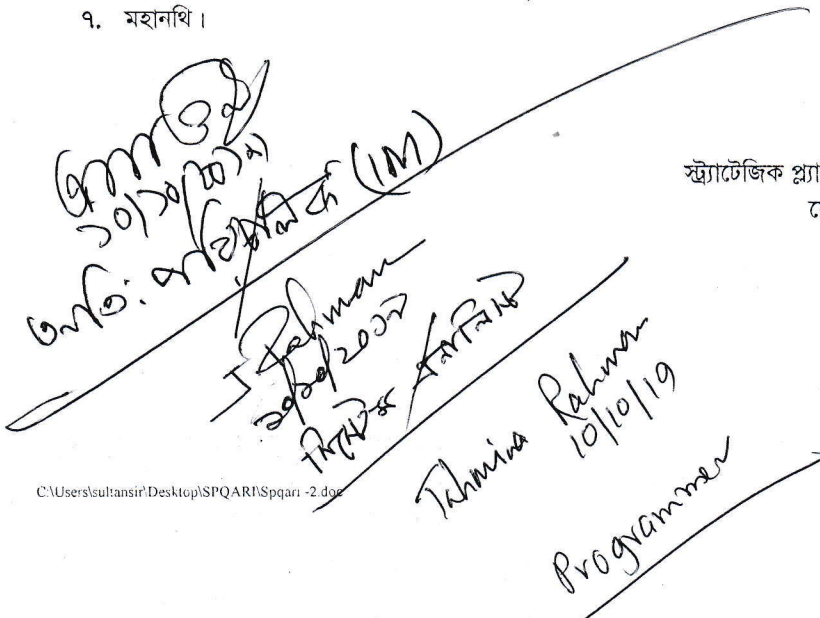 ৭. মহানথি।
স্ট্র্যাটেজিক প্ল্যা
১০/১০/২০১৯
অতি: পরিচালক (IM)
T Rahman
১০/১০/২০১৯
সিস্টেম এনালিস্ট
Tahmina Rahman
10/10/19
Programmer
C:\Users\sultansir\Desktop\SPQARI\Spqari -2.doc